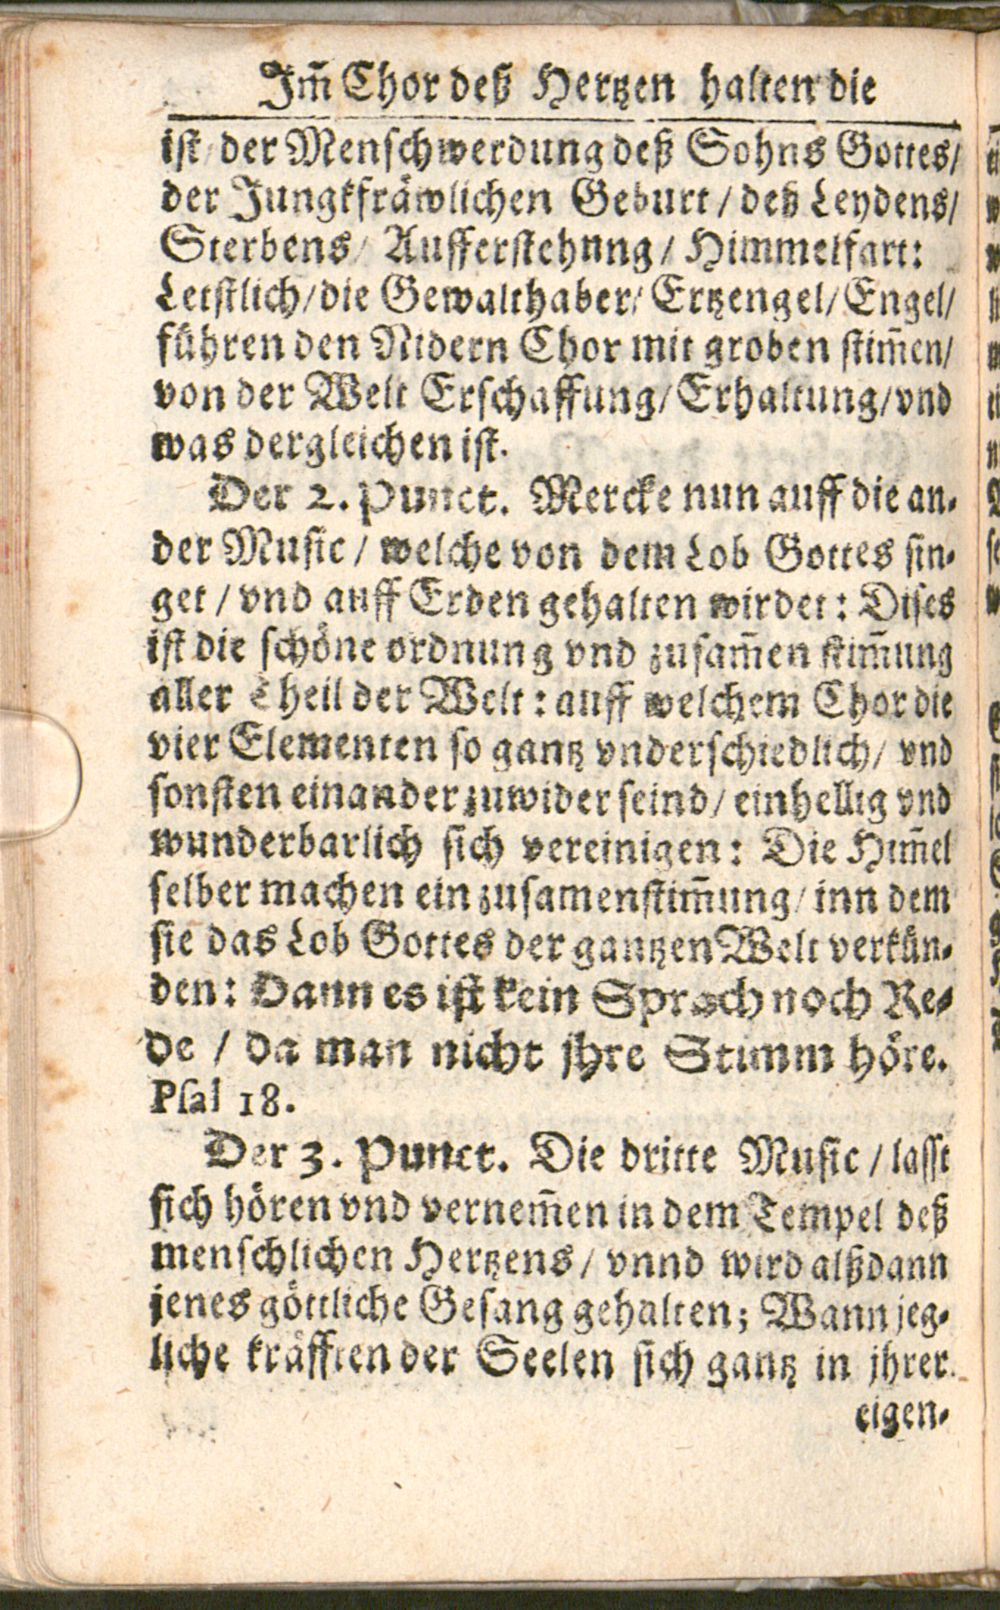 Im̃ Chor deß Hertzen halten die
ist der Menschwerdung deß Sohns Gottes/
der Jungkfräwlichen Geburt / deß Leydens/
Sterbens / Aufferstehnng / Himmelfart:
Letstlich/die Gewalthaber/ Ertzengel/ Engel/
führen den Nidern Chor mit groben stim̃en/
von der Welt Erschaffung/ Erhaltung/vnd
was dergleichen ist.
Der 2. Punct. Mercke nun auff die an-
der Music / welche von dem Lob Gottes sin-
get / vnd auff Erden gehalten wirdet: Dises
ist die schöne ordnung vnd zusam̃en stim̃ung
aller Theil der Welt: auff welchem Chor die
vier Elementen so gantz vnderschiedlich/ vnd
sonsten einander zuwider seind/ einhellig vnd
wunderbarlich sich vereinigen: Die Him̃el
selber machen ein zusamenstim̃ung/ inn dem
sie das Lob Gottes der gantzen Welt verkün-
den: Dann es ist kein Sprach noch Re-
de / da man nicht jhre Stimm höre.
Psal 18.
Der 3. Punct. Die dritte Music / lasst
sich hören vnd vernem̃en in dem Tempel deß
menschlichen Hertzens / vnnd wird alßdann
jenes göttliche Gesang gehalten; Wann jeg-
liche kräfften der Seelen sich gantz in jhrer
eigen-